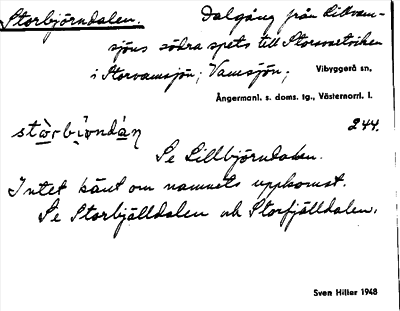 Storbjörndalen. Dalgång från Lillvam-
sjöns södra spets till Storsvartviken
i Storvamsjön; Vamsjön; Vibyggerå sn,
Ångermanl. s. doms. tg., Västernorrl. l.
244.
Se Lillbjörndalen.
Intet känt om namnets uppkomst.
Se Storbjälldalen och Storfjälldalen.
Sven Hiller 1948